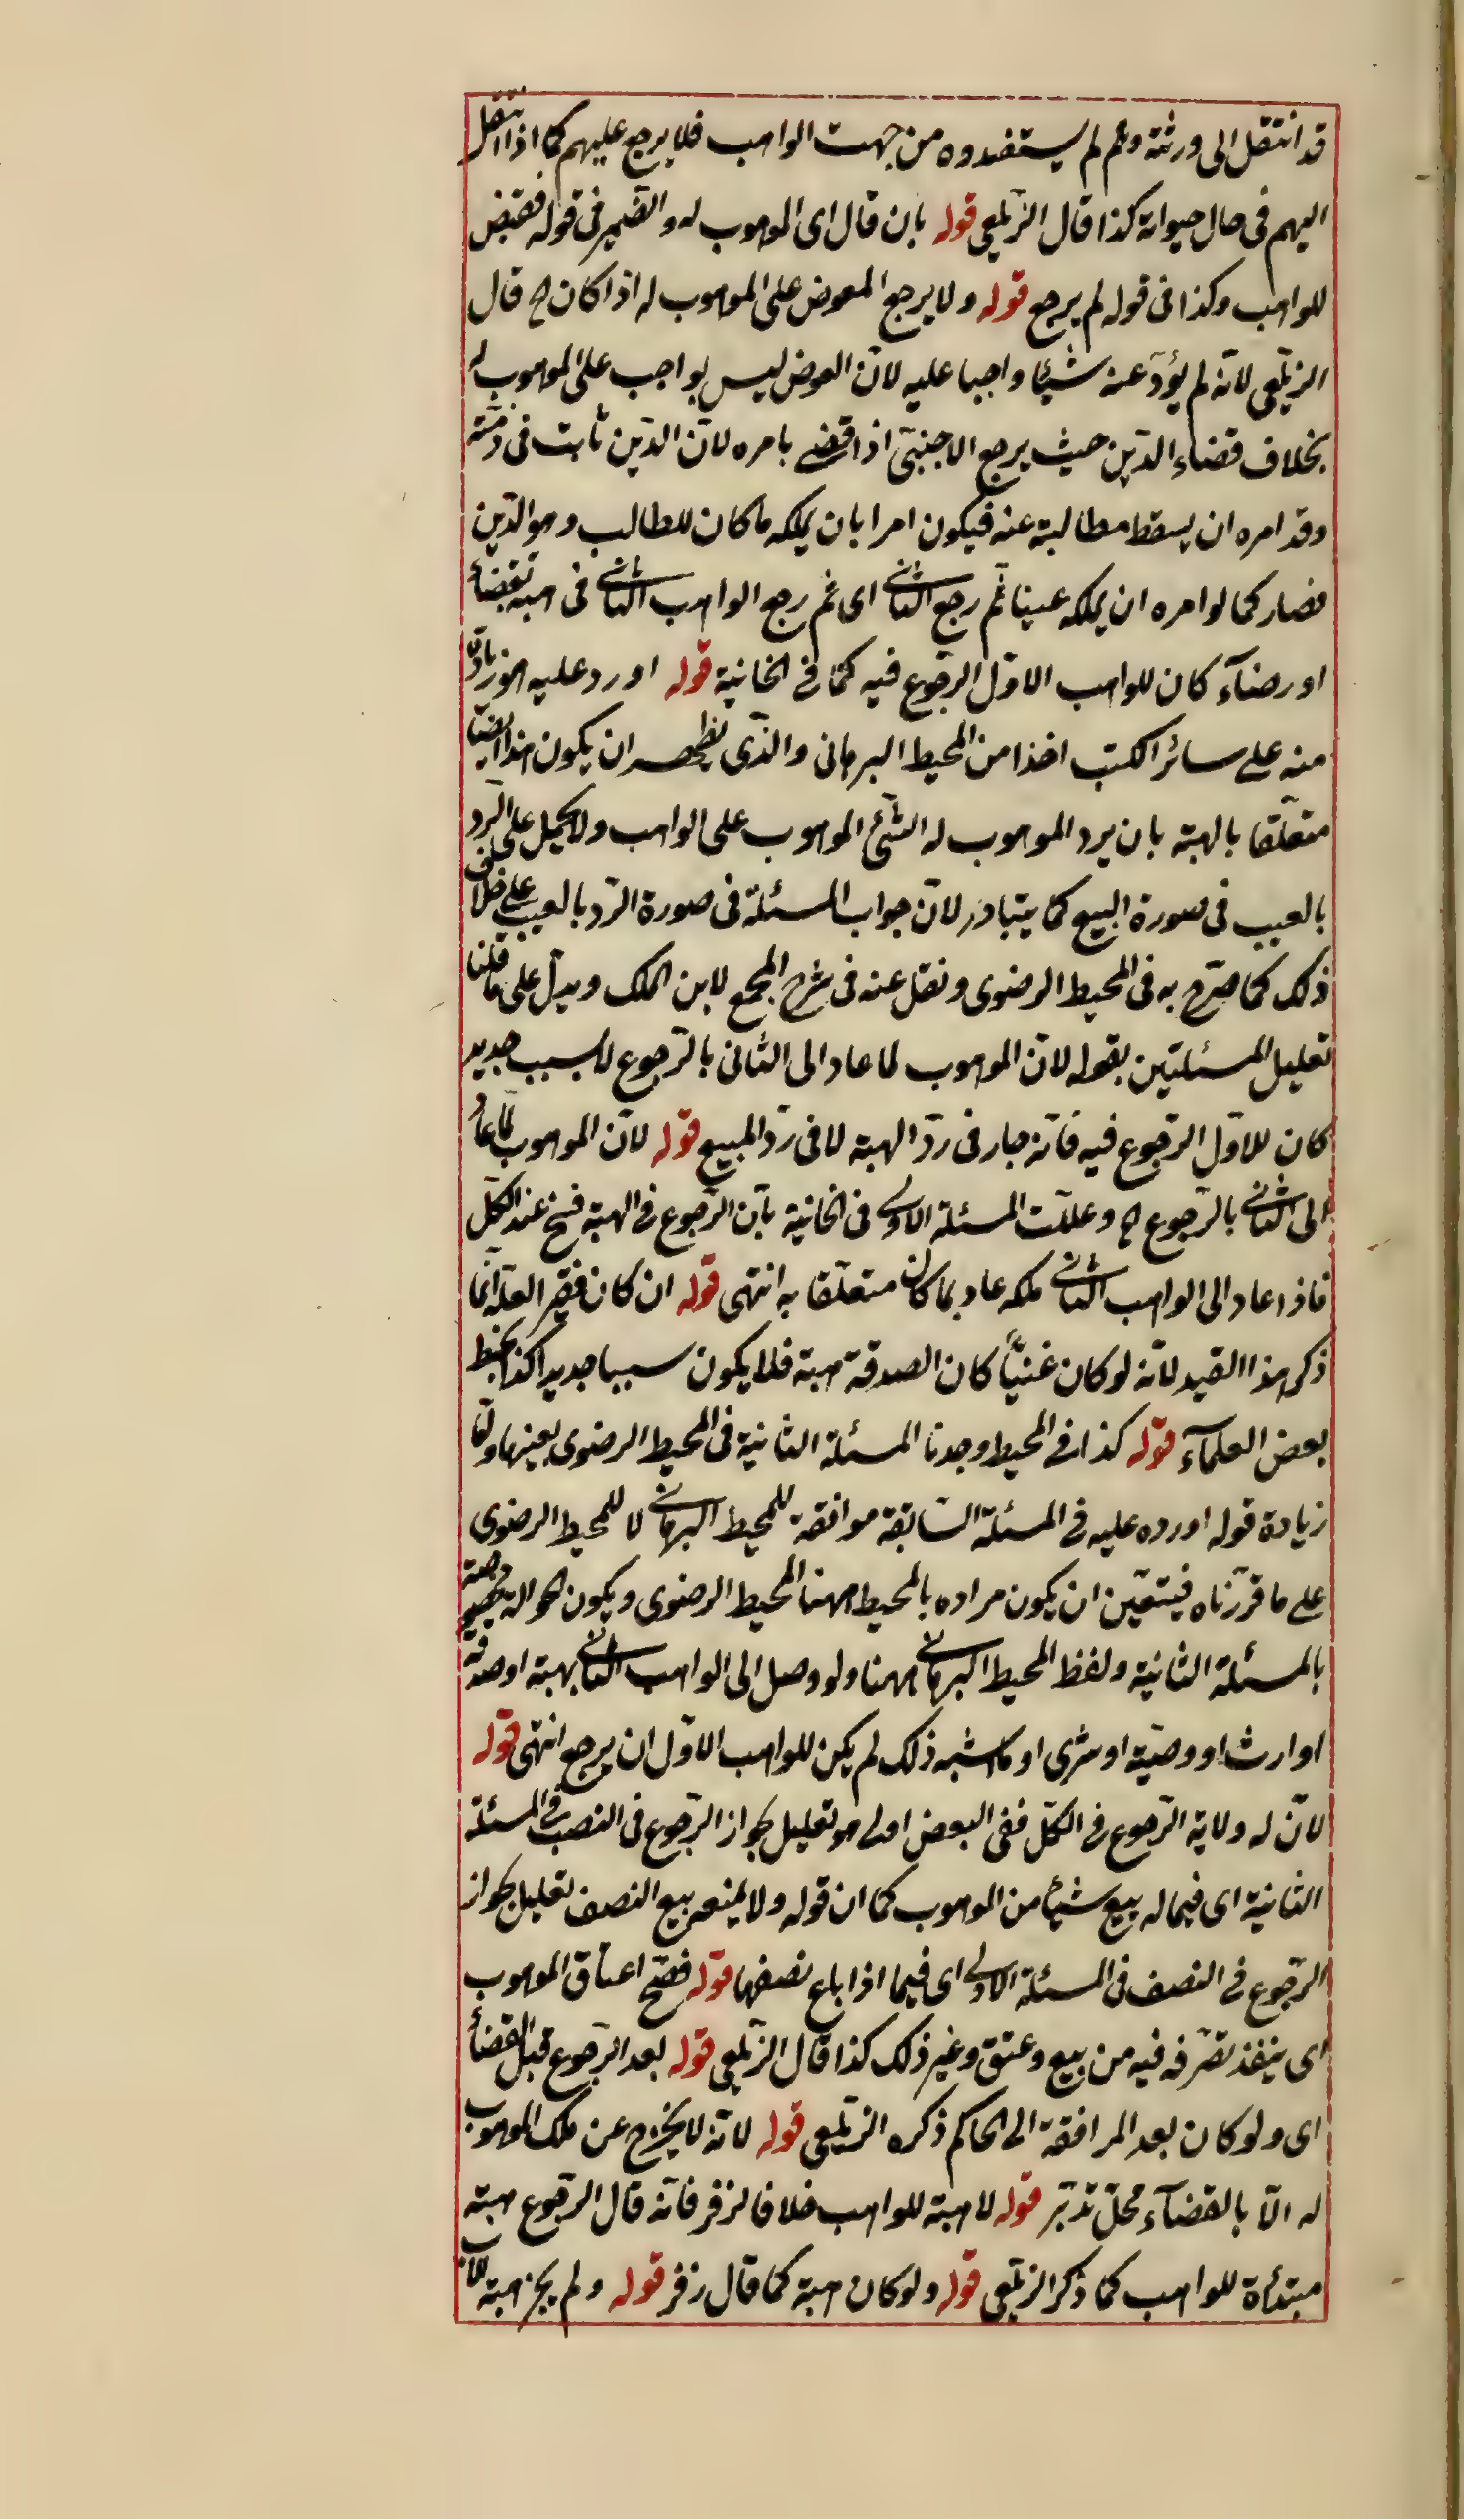 قد انتقل الى ورثته وهم لم يستفدوه من جهت الواهب فلا يرجع عليهم كما اذا انتقل
اليهم فى حال حيواته كذا قال الزيلعى قوله بان قال اى الموهوب له والضمير فى قوله فقبض
للواهب وكذا فى قوله لم يرجع قوله ولا يرجع المعوض على الموهوب له اذا كان ح قال
الزيلعى لانه لم يؤد عنه شيئا واجبا عليه لان العوض ليس بواجب على الموهوب له
بخلاف قضاء الدين حيث يرجع الاجنبى اذا قضى بامره لان الدين ثابت فى ذمته
وقد امره ان يسقط مطالبته عنه فيكون امرا بان يملكه ما كان للطالب وهو الدين
فصار كما لو امره ان يملكه عينا ثم رجع الثانى اى ثم رجع الواهب الثانى فى هبته بقضاء
او رضاء كان للواهب الاول الرجوع فيه كما فى الخانية قوله او رد عليه هو زيادة
منه على سائر الكتب اخذا من المحيط البرهانى والذى يظهر ان يكون هذا ايضا
متعلقا بالهبة بان يرد الموهوب له الشئ الموهوب على الواهب ولا يحمل على الرد
بالعيب فى صورة البيع كما يتبادر لان جواب المسئلة فى صورة الرد بالعيب على خلاف
ذلك كما صرح به فى المحيط الرضوى ونقل عنه فى شرح المجمع لابن الملك ويدل على ما قلنا
تعليل المسئلتين بقوله لان الموهوب لما عاد الى الثانى بالرجوع لا بسبب جديد
كان للاول الرجوع فيه فانه جار فى رد الهبة لا فى رد المبيع قوله لان الموهوب لما عاد
الى الثانى بالرجوع ح وعللت المسئلة الاولى فى الخانية بان الرجوع فى الهبة فسخ عند الكل
فاذا عاد الى الواهب الثانى ملكه عاد بما كان متعلقا به انتهى قوله ان كان فقيرا لعله انما
ذكر هذا القيد لانه لو كان غنيا كان الصدقة هبة فلا يكون سببا جديدا كذا بخط
بعض العلماء قوله كذا فى المحيط وجدنا المسئلة الثانية فى المحيط الرضوى بعينها ولما
زيادة قوله او رده عليه فى المسئلة السابقة موافقة للمحيط البرهانى لا للمحيط الرضوى
على ما قررناه فيتعين ان يكون مراده بالمحيط ههنا المحيط الرضوى ويكون الحوالة مخصوصة
بالمسئلة الثانية ولفظ المحيط البرهانى ههنا ولو وصل الى الواهب الثانى بهبة او صدقة
او ارث او وصية او شرى او ما اشبه ذلك لم يكن للواهب الاول ان يرجع انتهى قوله
لان له ولاية الرجوع فى الكل ففى البعض اولى هو تعليل لجواز الرجوع فى النصف فى المسئلة
الثانية اى فيما له بيع شيئا من الموهوب كما ان قوله ولا يمنعه بيع النصف تعليل لجواز
الرجوع فى النصف فى المسئلة الاولى اى فيما اذا باع نصفها قوله فصح اعتاق الموهوب
اى ينفذ تصرفه فيه من بيع وعتق وغير ذلك كذا قال الزيلعى قوله بعد الرجوع قبل القضاء
اى ولو كان بعد المرافقة الى الحاكم ذكره الزيلعى قوله لانه لا يخرج عن ملك الموهوب
له الا بالقضاء محل تدبر قوله لا هبة للواهب خلافا لزفر فانه قال الرجوع هبة
مبتدأة للواهب كما ذكر الزيلعى قوله ولو كان هبة كما قال زفر قوله ولم يجز هبة